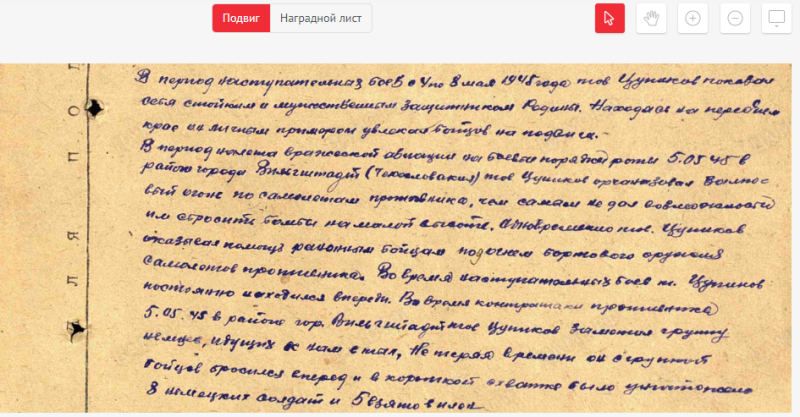 Подвиг Наградной лист
В период наступательных боев с 4 по 8 мая 1945 года тов Цупиков показал
себя стойким и мужественным защитником Родины. Находясь на переднем
крае он личным примером увлекал бойцов на подвиги.
В период налета вражеской авиации на боевые порядки роты 5.05.45 в
районе города Вильгштадт (Чехословакия) тов Цупиков организовал залпо-
вый огонь по самолетам противника, чем самым не дал возможности
им сбросить бомбы на малой высоте. Одновременно тов. Цупиков
оказывал помощь раненым бойцам под огнем бортового оружия
самолетов противника. Во время наступательных боев т. Цупиков
постоянно находился впереди. Во время контратаки противника
5.05.45 в районе гор. Вильгштадт тов Цупиков заметил группу
немцев, идущих к нам в тыл, Не теряя времени он с группой
бойцов бросился вперед и в короткой схватке было уничтожено
8 немецких солдат и 5 взято в плен